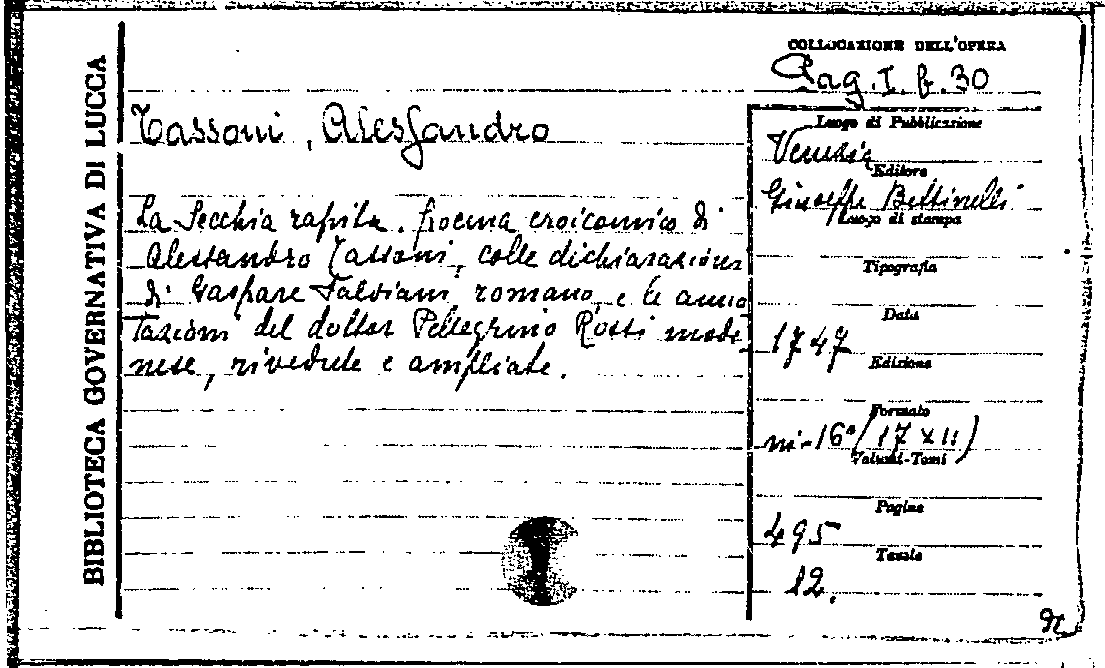 BIBLIOTECA GOVERNATIVA DI LUCCA
COLLOCAZIONE DELL'OPERA
Pag. I. f. 30
Tassoni, Alessandro
La Secchia rapita. Poema eroicomico di
Alessandro Tassoni, colle dichiarazioni
di Gaspare Salviani romano, e le anno
tazioni del dottor Pellegrino Rossi mode
nese, rivedute e ampliate.
Luogo di Pubblicazione
Venezia
Editore
Giuseppe Bettinelli
Luogo di stampa
Tipografia
Data
1747
Edizione
Formato
in-16° (17 x 11)
Volumi-Tomi
Pagine
495
Tavole
12.